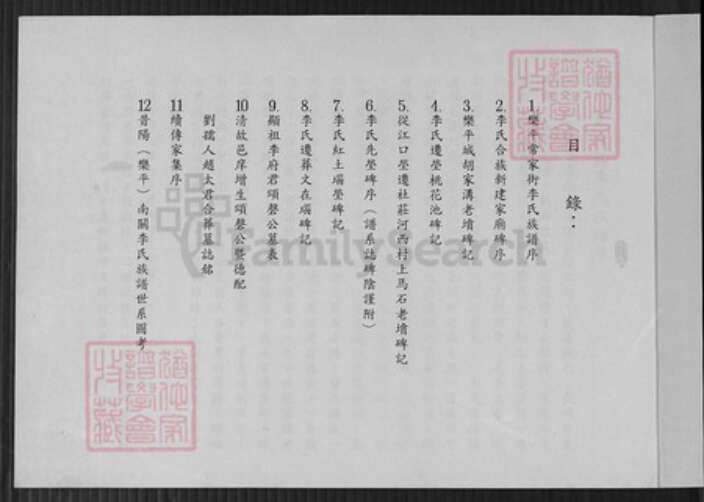 目錄：
1.樂平常家街李氏族譜序
2.李氏合族新建家廟碑序
3.樂平城胡家溝老墳碑記
4.李氏遷塋桃花池碑記
5.從江口塋遷社莊河西村上馬石老墳碑記
6.李氏先塋碑序（譜系誌碑陰謹附）
7.李氏紅土堖塋碑記
8.李氏遷葬文在堖碑記
9.顯祖李府君頌聲公墓表
10清故邑庠增生頌聲公暨德配
劉孺人趙太君合葬墓誌銘
11續傳家集序
12昔陽（樂平）南關李氏族譜世系圖考
FamilySearch